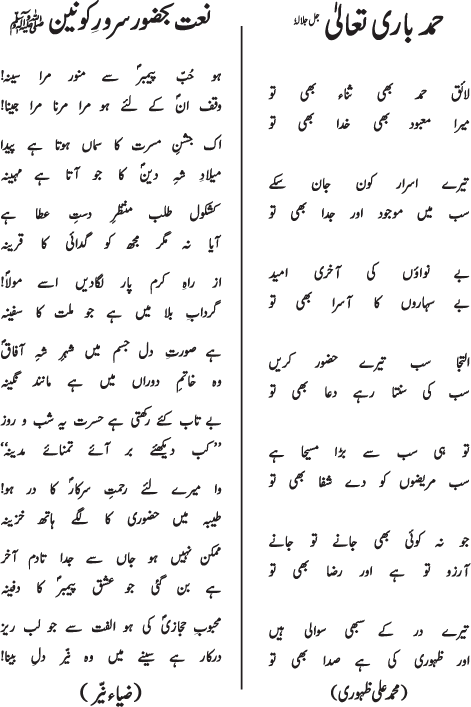 حمد باری تعالیٰ جل جلالہٗ
لائق حمد بھی ثناء بھی تو
میرا معبود بھی خدا بھی تو
تیرے اسرار کون جان سکے
سب میں موجود اور جدا بھی تو
بے نواؤں کی آخری امید
بے سہاروں کا آسرا بھی تو
التجا سب تیرے حضور کریں
سب کی سنتا رہے دعا بھی تو
تو ہی سب سے بڑا مسیحا ہے
سب مریضوں کو دے شفا بھی تو
جو نہ کوئی بھی جانے تو جانے
آرزو تو ہے اور رضا بھی تو
تیرے در کے سبھی سوالی ہیں
اور ظہوری کی ہے صدا بھی تو
(محمد علی ظہوری)
نعت بحضور سرور کونین ﷺ
ہو حُبّ پیمبرؐ سے منور مرا سینہ!
وقف انؐ کے لئے ہو مرا مرنا مرا جینا!
اک جشنِ مسرت کا سماں ہوتا ہے پیدا
میلادِ شہِ دیںؐ کا جو آتا ہے مہینہ
کشکول طلب منتظرِ دستِ عطا ہے
آیا نہ مگر مجھ کو گدائی کا قرینہ
از راہِ کرم پار لگادیں اسے مولاؐ!
گرداب بلا میں ہے جو ملت کا سفینہ
ہے صورتِ دل جسم میں شہرِ شہِ آفاقؐ
وہ خاتمِ دوراں میں ہے مانند نگینہ
بے تاب کئے رکھتی ہے حسرت یہ شب و روز
’’کب دیکھئے بر آئے تمنائے مدینہ‘‘
وا میرے لئے رحمتِ سرکارؐ کا در ہو!
طیبہ میں حضوری کا لگے ہاتھ خزینہ
ممکن نہیں ہو جاں سے جدا تادم آخر
ہے بن گئی جو عشق پیمبرؐ کا دفینہ
محبوبِ حجازیؐ کی ہو الفت سے جو لب ریز
درکار ہے سینے میں وہ نیّر دلِ بینا!
(ضیاء نیّر)